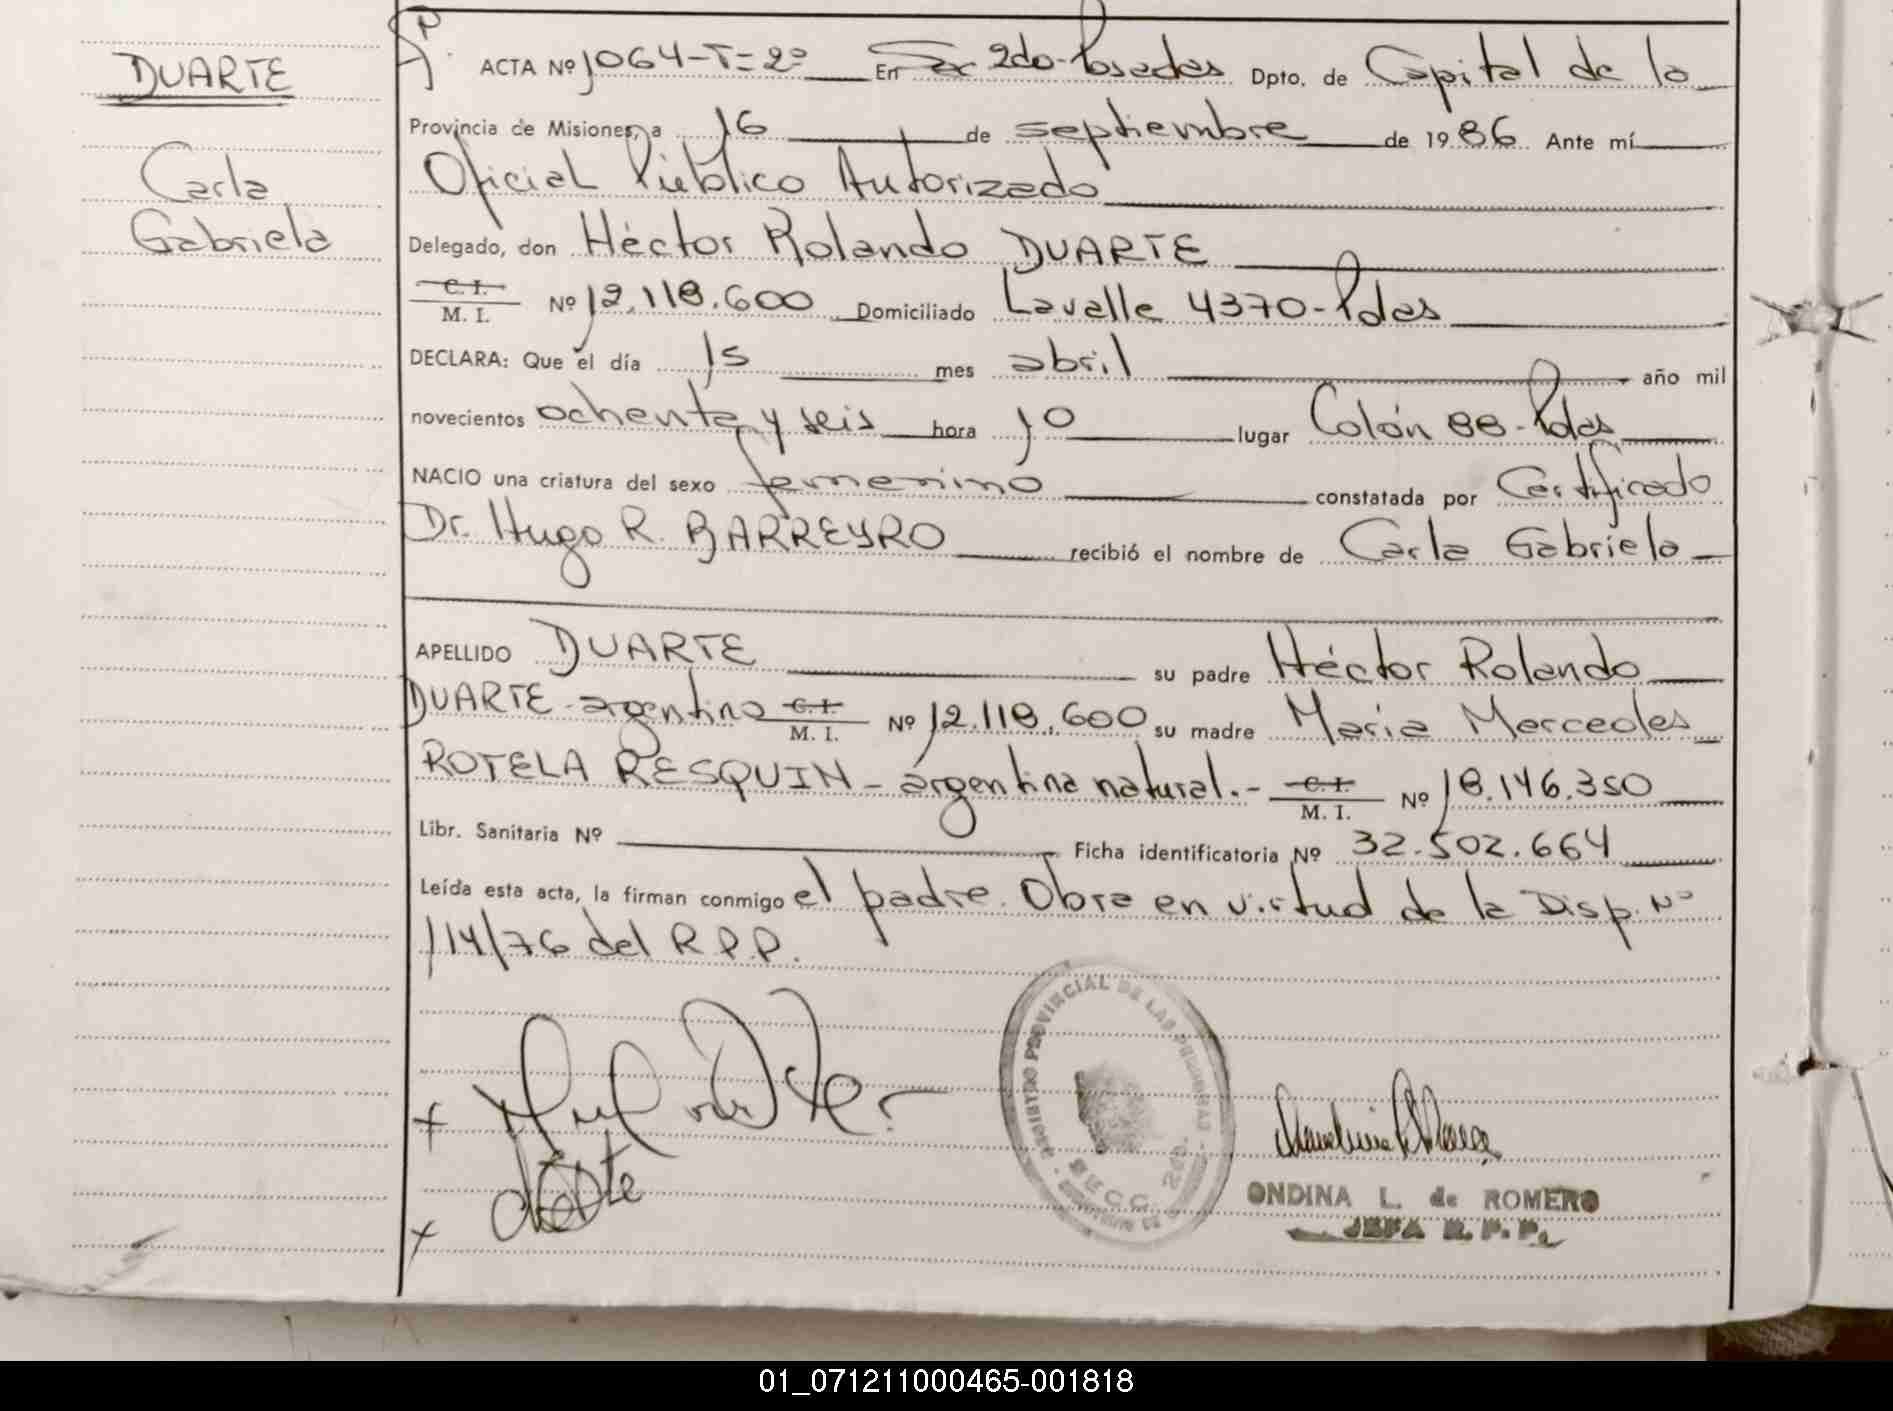 DUARTE
Carla
Gabriela
ACTA Nº 1064-T=2º En Sec 2do-Posadas Dpto. de Capital de la
Provincia de Misiones, a 16 de septiembre de 1986. Ante mí
Oficial Público Autorizado
Delegado, don Héctor Rolando DUARTE
C. I.
M. I. Nº 12.118.600 Domiciliado Lavalle 4370-Pdas
DECLARA: Que el día 15 mes abril año mil
novecientos ochenta y seis hora 10 lugar Colón 88-Pdas
NACIO una criatura del sexo femenino constatada por Certificado
Dr. Hugo R. BARREYRO recibió el nombre de Carla Gabriela
APELLIDO DUARTE su padre Héctor Rolando
DUARTE-argentino C. I. M. I. Nº 12.118.600 su madre Maria Mercedes
ROTELA RESQUIN-argentina natural.- C. I. M. I. Nº 18.146.350
Libr. Sanitaria Nº Ficha identificatoria Nº 32.502.664
Leída esta acta, la firman conmigo el padre. Obra en virtud de la Disp. Nº
114/76 del R.P.P.
REGISTRO PROVINCIAL DE LAS PERSONAS
SECC. 2da.
ONDINA L. de ROMERO
JEFA R. P. P.
01_071211000465-001818